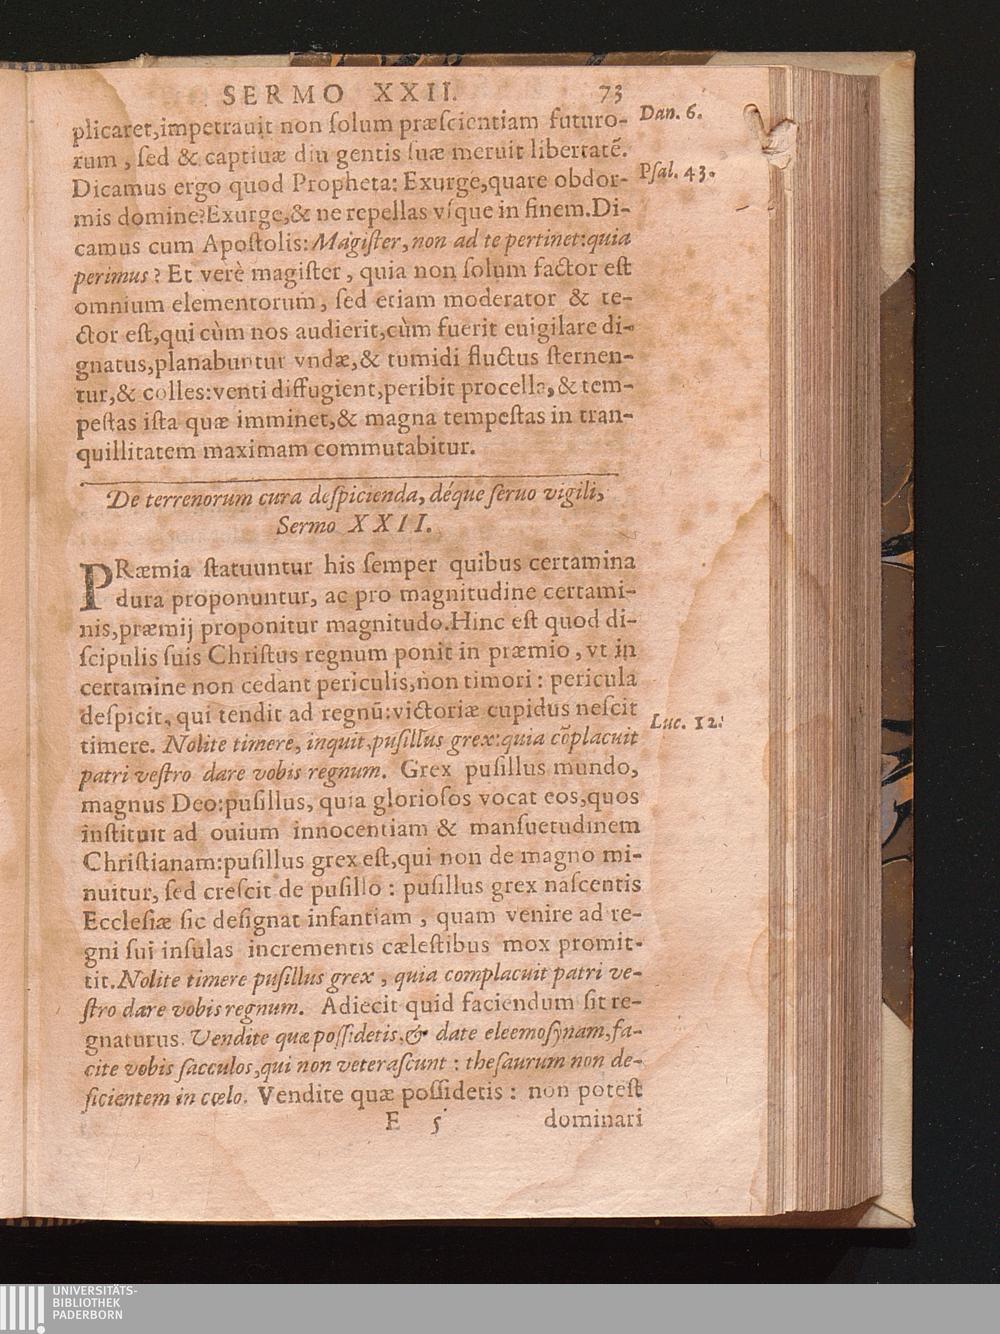 SERMO XXII. 73
plicaret,impetrauit non ſolum præſcientiam futuro-
rum , ſed & captiuæ diu gentis ſuæ meruit libertatē.
Dan. 6.
Dicamus ergo quod Propheta: Exurge,quare obdor-
Pſal. 43.
mis domine?Exurge,& ne repellas vſque in finem.Di-
camus cum Apoſtolis: Magiſter, non ad te pertinet:quia
perimus? Et verè magiſter, quia non ſolum factor eſt
omnium elementorum, ſed etiam moderator & re-
ctor eſt,qui cùm nos audierit,cùm fuerit euigilare di-
gnatus,planabuntur vndæ,& tumidi fluctus ſternen-
tur,& colles:venti diffugient,peribit procella,& tem-
peſtas iſta quæ imminet,& magna tempeſtas in tran-
quillitatem maximam commutabitur.
De terrenorum cura deſpicienda, déque ſeruo vigili,
Sermo XXII.
PRæmia ſtatuuntur his ſemper quibus certamina
dura proponuntur, ac pro magnitudine certami-
nis,præmij proponitur magnitudo.Hinc eſt quod di-
ſcipulis ſuis Chriſtus regnum ponit in præmio , vt in
certamine non cedant periculis,non timori : pericula
deſpicit, qui tendit ad regnū:victoriæ cupidus neſcit
Luc. 12.
timere. Nolite timere, inquit,puſillus grex:quia cōplacuit
patri veſtro dare vobis regnum. Grex puſillus mundo,
magnus Deo:puſillus, quia glorioſos vocat eos,quos
inſtituit ad ouium innocentiam & manſuetudinem
Chriſtianam:puſillus grex eſt,qui non de magno mi-
nuitur, ſed creſcit de puſillo : puſillus grex naſcentis
Eccleſiæ ſic deſignat infantiam , quam venire ad re-
gni ſui inſulas incrementis cæleſtibus mox promit-
tit. Nolite timere puſillus grex , quia complacuit patri ve-
ſtro dare vobis regnum. Adiecit quid faciendum ſit re-
gnaturus. Vendite quæ poſſidetis,& date eleemoſynam,fa-
cite vobis ſacculos,qui non veteraſcunt : theſaurum non de-
ficientem in cœlo. Vendite quæ poſſidetis : non poteſt
E 5 dominari
UNIVERSITÄTS-
BIBLIOTHEK
PADERBORN